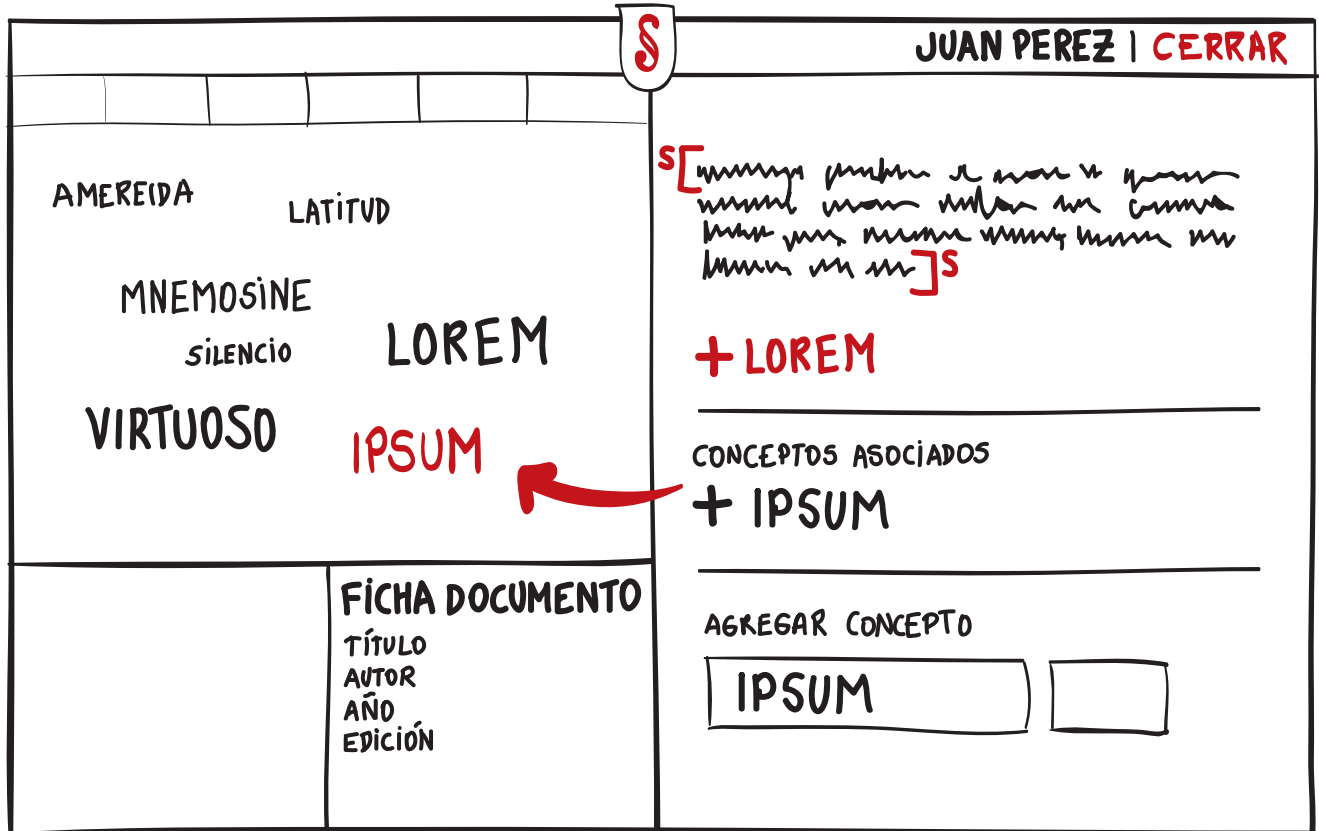 §
JUAN PEREZ | CERRAR
AMEREIDA
LATITUD
MNEMOSINE
SILENCIO
LOREM
VIRTUOSO
IPSUM
FICHA DOCUMENTO
TÍTULO
AUTOR
AÑO
EDICIÓN
S[
]S
+ LOREM
CONCEPTOS ASOCIADOS
+ IPSUM
AGREGAR CONCEPTO
IPSUM